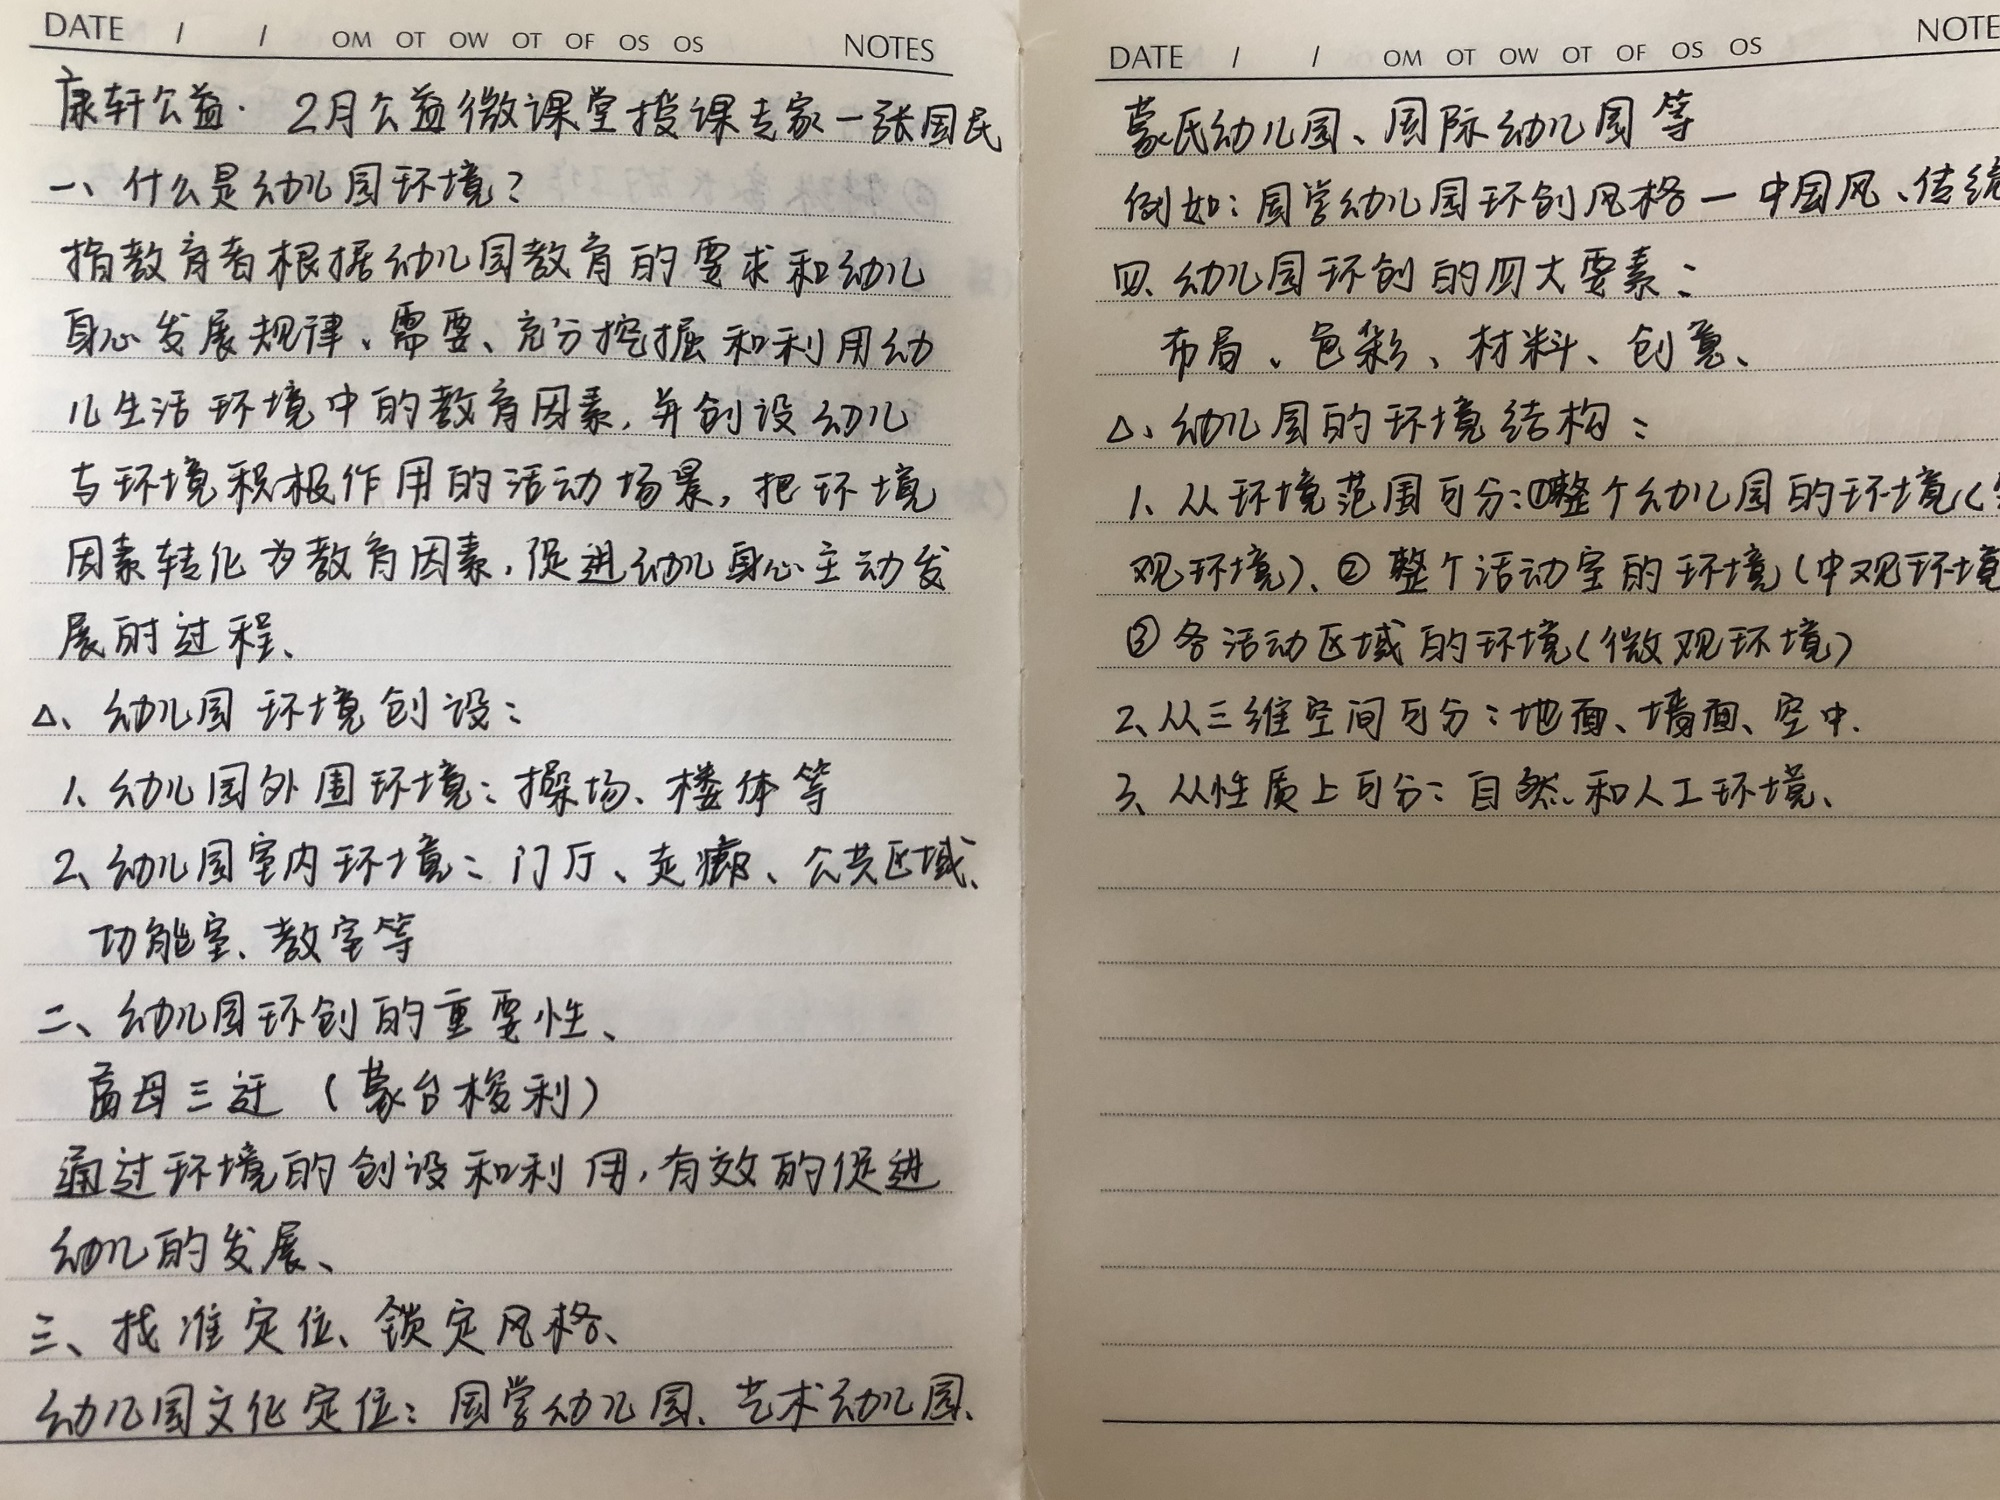 DATE / / OM OT OW OT OF OS OS NOTES
康轩公益. 2月公益微课堂授课专家—张国民
一、什么是幼儿园环境?
指教育者根据幼儿园教育的要求和幼儿
身心发展规律、需要、充分挖掘和利用幼
儿生活环境中的教育因素,并创设幼儿
与环境积极作用的活动场景,把环境
因素转化为教育因素,促进幼儿身心主动发
展的过程、
△、幼儿园环境创设:
1、幼儿园外围环境:操场、楼体等
2、幼儿园室内环境:门厅、走廊、公共区域、
功能室、教室等
二、幼儿园环创的重要性、
母三迁(蒙台梭利)
通过环境的创设和利用,有效的促进
幼儿的发展、
三、找准定位、锁定风格、
幼儿园文化定位:国学幼儿园、艺术幼儿园、
DATE / / OM OT OW OT OF OS OS NOTE
蒙氏幼儿园、国际幼儿园等
例如:国学幼儿园环创风格—中国风、传统
四、幼儿园环创的四大要素:
布局、色彩、材料、创意、
△、幼儿园的环境结构:
1、从环境范围可分:①整个幼儿园的环境(
观环境)、②整个活动室的环境(中观环境
③各活动区域的环境(微观环境)
2、从三维空间可分:地面、墙面、空中.
3、从性质上可分:自然和人工环境、